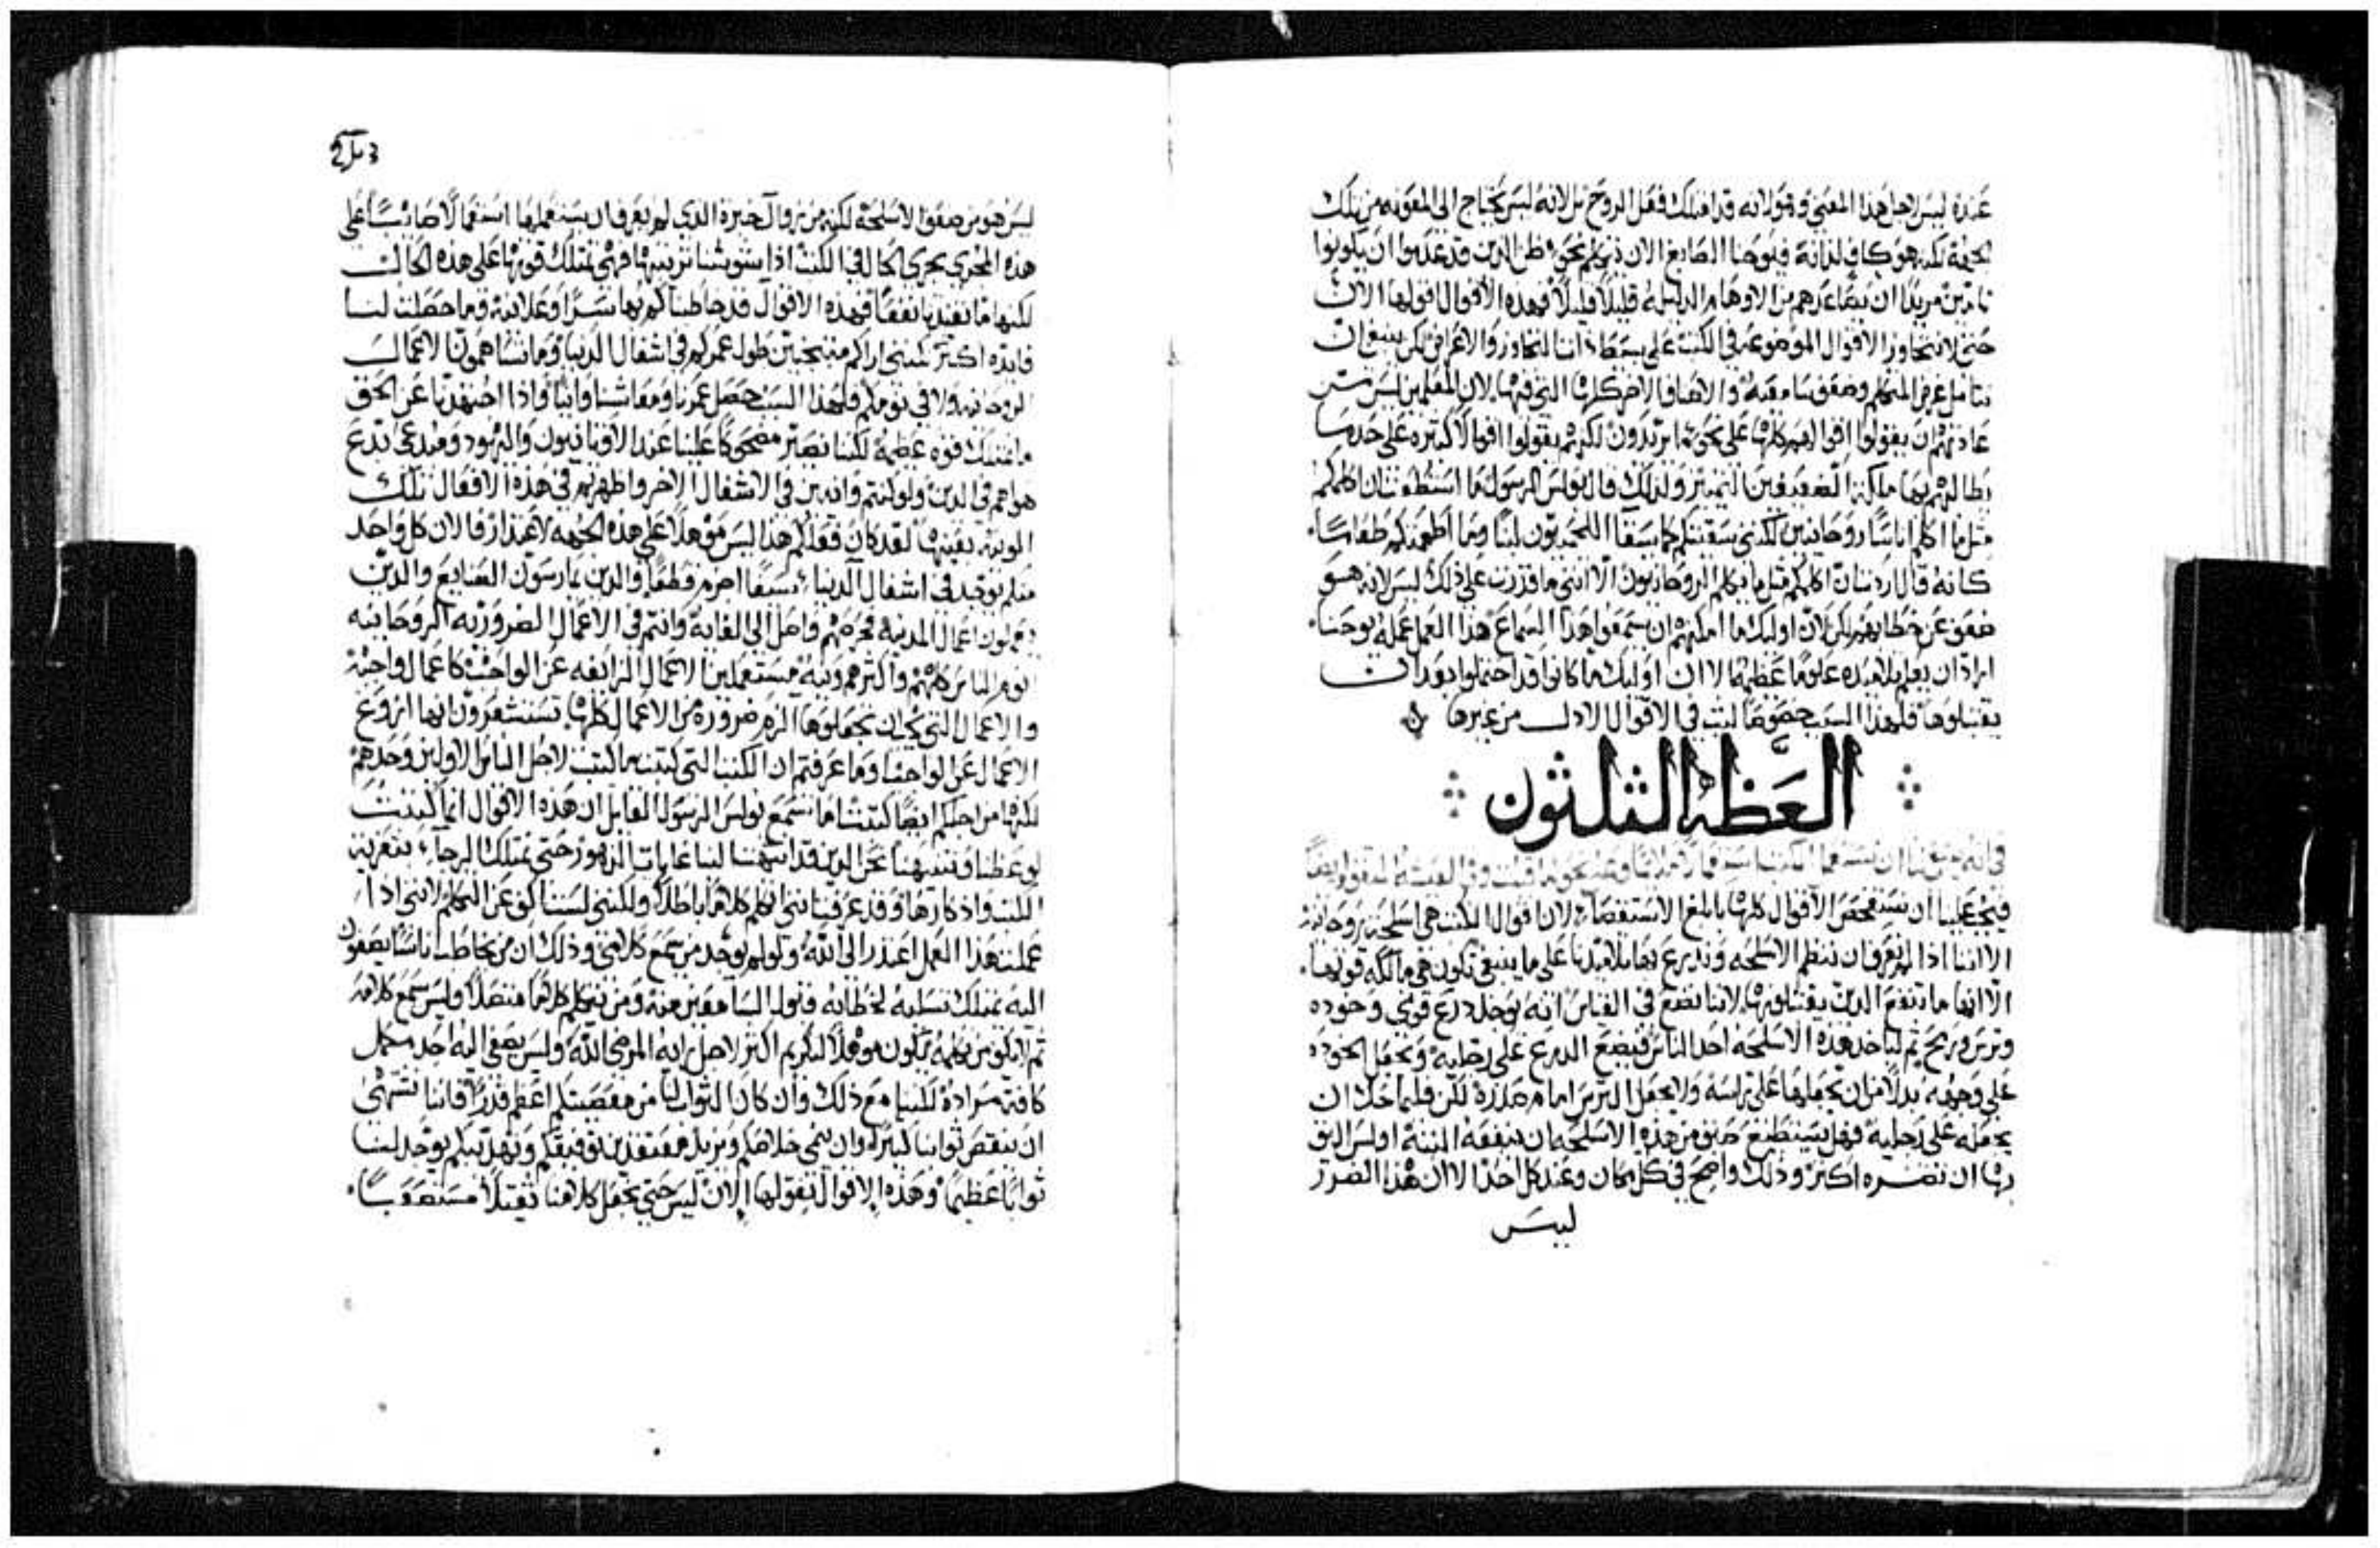 عنده ليس لاجل هذا المعني وهو لانه قد امتلك فعل الروح بل لانه ليس يحتاج الى المعونه من تلك
الجهة لكنه هو كاف لذاته فيوحنا الصابغ الان ذكرهم نحو ظن الذين قد عدموا ان يكونوا
ان يصاعدهم من الاوهام الذليلة قليلاً قليلاً فهذه الاقوال اقولها الان
حتى لا نتجاوز الاقوال الموضوعة في الكتب على بسيط ذاتنا لتجاوز والاعراض لكن ينبغي ان
نتامل غرض المتكلم وضعف سامعيه والاصناف الاخر كلها التي فيها لان المعلمين ليس من
عادتهم ان يقولوا اقوالهم كلها على نحو ما يريدون لكنهم يقولوا اقوالاً كثيره على حد ما
يطالبهم بها ملكة الضعيفين التمييز ولذلك قال بولس الرسول ما استطعت ان اكلمكم
مثل ما اكلم اناسًا روحانيين لكنني سقيتكم كما يسقا اللحميون لبنًا وما اطعمتكم طعامًا
كانه قال اردت ان اكلمكم مثل ما يكلم الروحانيون الا انني ما قدرت على ذلك ليس لانه هو
ضعف عن خطابهم لكن لان اوليك ما امكنهم ان يسمعوا هذا السماع هذا العمل عمله يوحنا
اراد ان يعلم تلاميذه علومًا عظيمة الا ان اوليك ما كانوا قد احتملوا بعد ان
يقتبلوها فلهذا السبب خصوصًا لبث في الاقوال الادل من غيرها
العظه الثلثون
فيجب علينا ان نستفحص الاقوال كلها بابلغ الاستقصاء لان اقوال الكتب هي اسلحة روحانية
الا اننا اذا لم نعرف ان ننظم الاسلحه وندرع بها تلاميذنا على ما ينبغي تكون هي مالكة قوتها
الا انها ما تنفع الذين يقتبلونها لاننا نضع في القياس انه يوجد درع قوي وخوده
وترس ورمح ثم لياخذ هذه الاسلحه احد الناس فيضع الدرع على رجليه ويجعل الخوده
على وجهه بدلاً من ان يجعلها على راسه ولا يجعل الترس امام صدره لكن فليحاول ان
يجعله على رجليه فهل يستطيع صنف من هذه الاسلحه ان ينفعه البتة اوليس اليق
بها ان تضره اكثر وذلك واضح في كل مكان وعند كل احد الا ان هذا الضرر
ليس
ليس هو من ضعف الاسلحه لكنه من زوال خبرة الذي لم يعرف ان يستعملها استعمالاً صائبًا على
هذه المجري يجري الحال في الكتب اذا شوشنا ترتيبها فهي تمتلك قوتها على هذه الحال
لكنها ما تفيدنا نفعًا فهذه الاقوال قد خاطبناكم بها سرًا وعلانية وما حصلت لنا
فايده اكثر لكنني اراكم منتحبين طول عمركم في اشغال الدنيا وما تساهمون الاعمال
الروحانيه ولا في نومكم فلهذا السبب حصل عمرنا ومعاشنا واذا اجتهدنا عن الحق
ما نمتلك قوه عظيمة لكننا نصير مضحوكًا علينا عند الاوثانيون واليهود ومبدعي بدع
هواهم في الدين ولو كنتم وانين في الاشغال الاخر واظهرتم في هذه الافعال تلك
الونية بعينها لقد كان فعلكم هذا ليس موهلاً على هذه الجهه لاعتذار فالان كل واحد
منكم يوجد في اشغال الدنيا والذين يمارسون الصنايع والذين
يعملون اعمال المدينة فحرصهم واصل الى الغاية وانتم في الاعمال الضروريه الروحانيه
اكثرهم ونية مستعملين الاعمال الزائغه عن الواجب كاعمال واجبة
والاعمال التي يجب ان نجعلوها الزم ضرورة من الاعمال كلها تستشعرون انها ازوغ
الاعمال عن الواجب وما عرفتم ان الكتب التي كتبت ما كتبت لاجل الناس الاولين وحدهم
لكنها من اجلكم ايضًا كتبت اما تسمع بولس الرسول القايل ان هذه الاقوال انما كتبت
لوعظنا وتنبيهنا نحن الذين قد انتهت لنا غايات الدهور حتى نمتلك الرجاء بتعزية
الكتب واذكارها وقد عرفت انني اتكلم كلامًا باطلاً ولكنني لست اكف عن التكلم لانني اذا
عملت هذا العمل اعتذر الى الله ولو لم يوجد من سمع كلامي وذلك ان من يخاطب اناسًا يصغون
اليه يمتلك تسلية لخطابه قبول السامعين منه ومن يتكلم كلامًا متصلاً وليس يسمع كلامه
ثم لا يكف من تكلمه يكون موهلاً لتكريم اكثر لاجل رايه المرضي الله وليس يصغى اليه احد مكمل
كافة مراده لكننا مع ذلك وان كان الثواب لنا من معصيتكم اعظم قدرًا فاننا نشتهي
ان ينقص ثوابنا كثيرًا وان ينمي خلاصكم ويزيد معتقدين توفيقكم وتهذيبكم يوجد لنا
ثوابًا عظيمًا وهذه الاقوال نقولها الان ليس حتى نجعل كلامنا ثقيلاً مستصعبًا